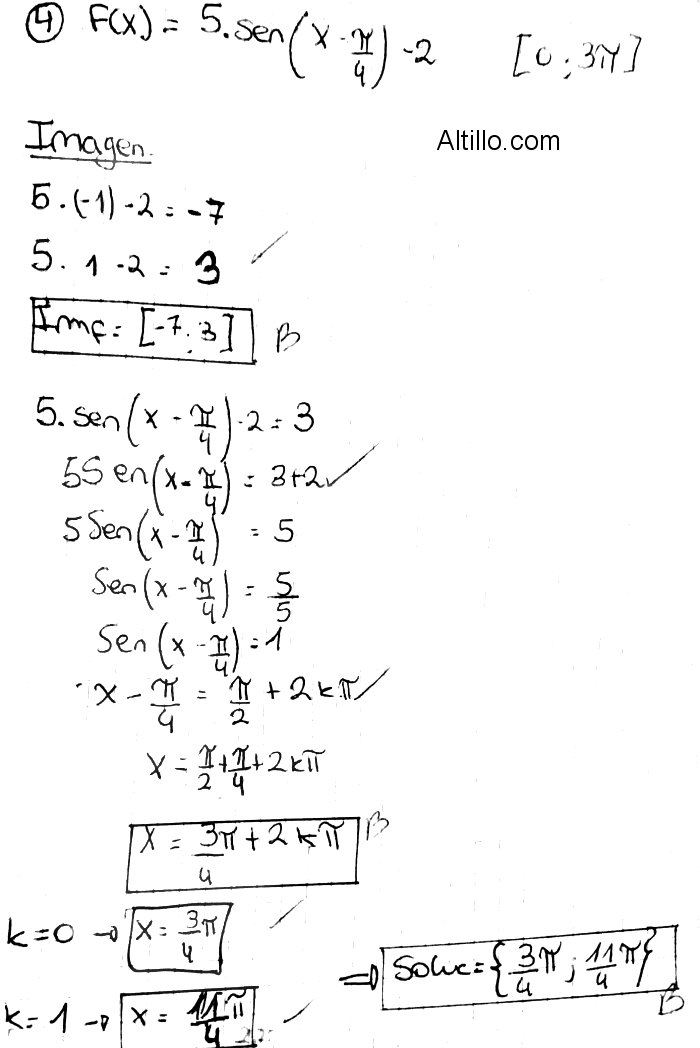 ④ F(x) = 5.sen(x - π/4) - 2 [0 ; 3π]
Imagen.
Altillo.com
5.(-1) - 2 = -7
5. 1 - 2 = 3 ✓
Imf = [-7 ; 3] B
5.sen(x - π/4) - 2 = 3
5Sen(x - π/4) = 3+2 ✓
5Sen(x - π/4) = 5
Sen(x - π/4) = 5/5
Sen(x - π/4) = 1
x - π/4 = π/2 + 2kπ ✓
x = π/2 + π/4 + 2kπ
x = 3/4 π + 2kπ B
k=0 → x = 3/4 π ✓
k=1 → x = 11/4 π ✓
⇒ Soluc = {3/4 π ; 11/4 π} B